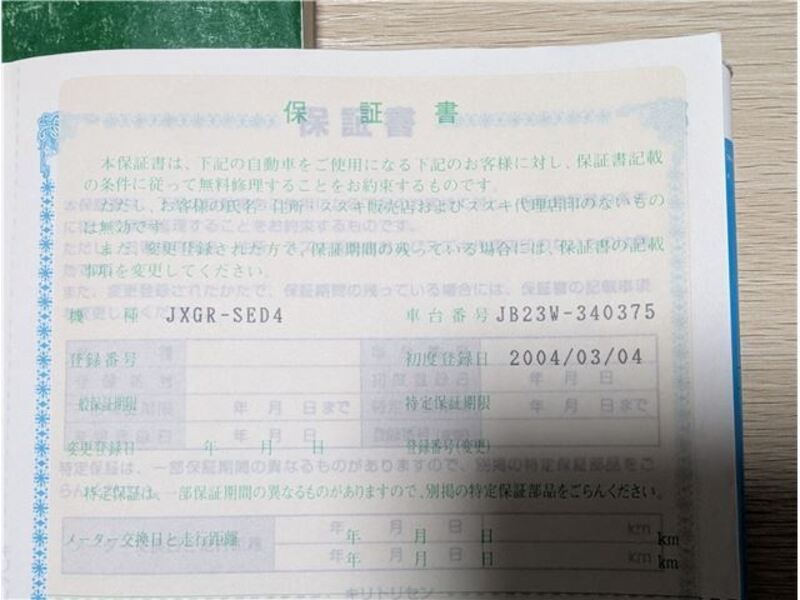 保証書
本保証書は、下記の自動車をご使用になる下記のお客様に対し、保証書記載
の条件に従って無料修理することをお約束するものです。
ただし、お客様の氏名・住所・スズキ販売店およびスズキ代理店印のないもの
は無効です。
また、変更登録された方で、保証期間の残っている場合には、保証書の記載
事項を変更してください。
機　種 JXGR-SED4 車台番号 JB23W-340375
登録番号 初度登録日 2004/03/04
一般保証期限 特定保証期限
変更登録日 年 月 日 登録番号(変更)
特定保証は、一部保証期間の異なるものがありますので、別掲の特定保証部品をごらんください。
メーター交換日と走行距離 年 月 日 km
年 月 日 km
キリトリセン